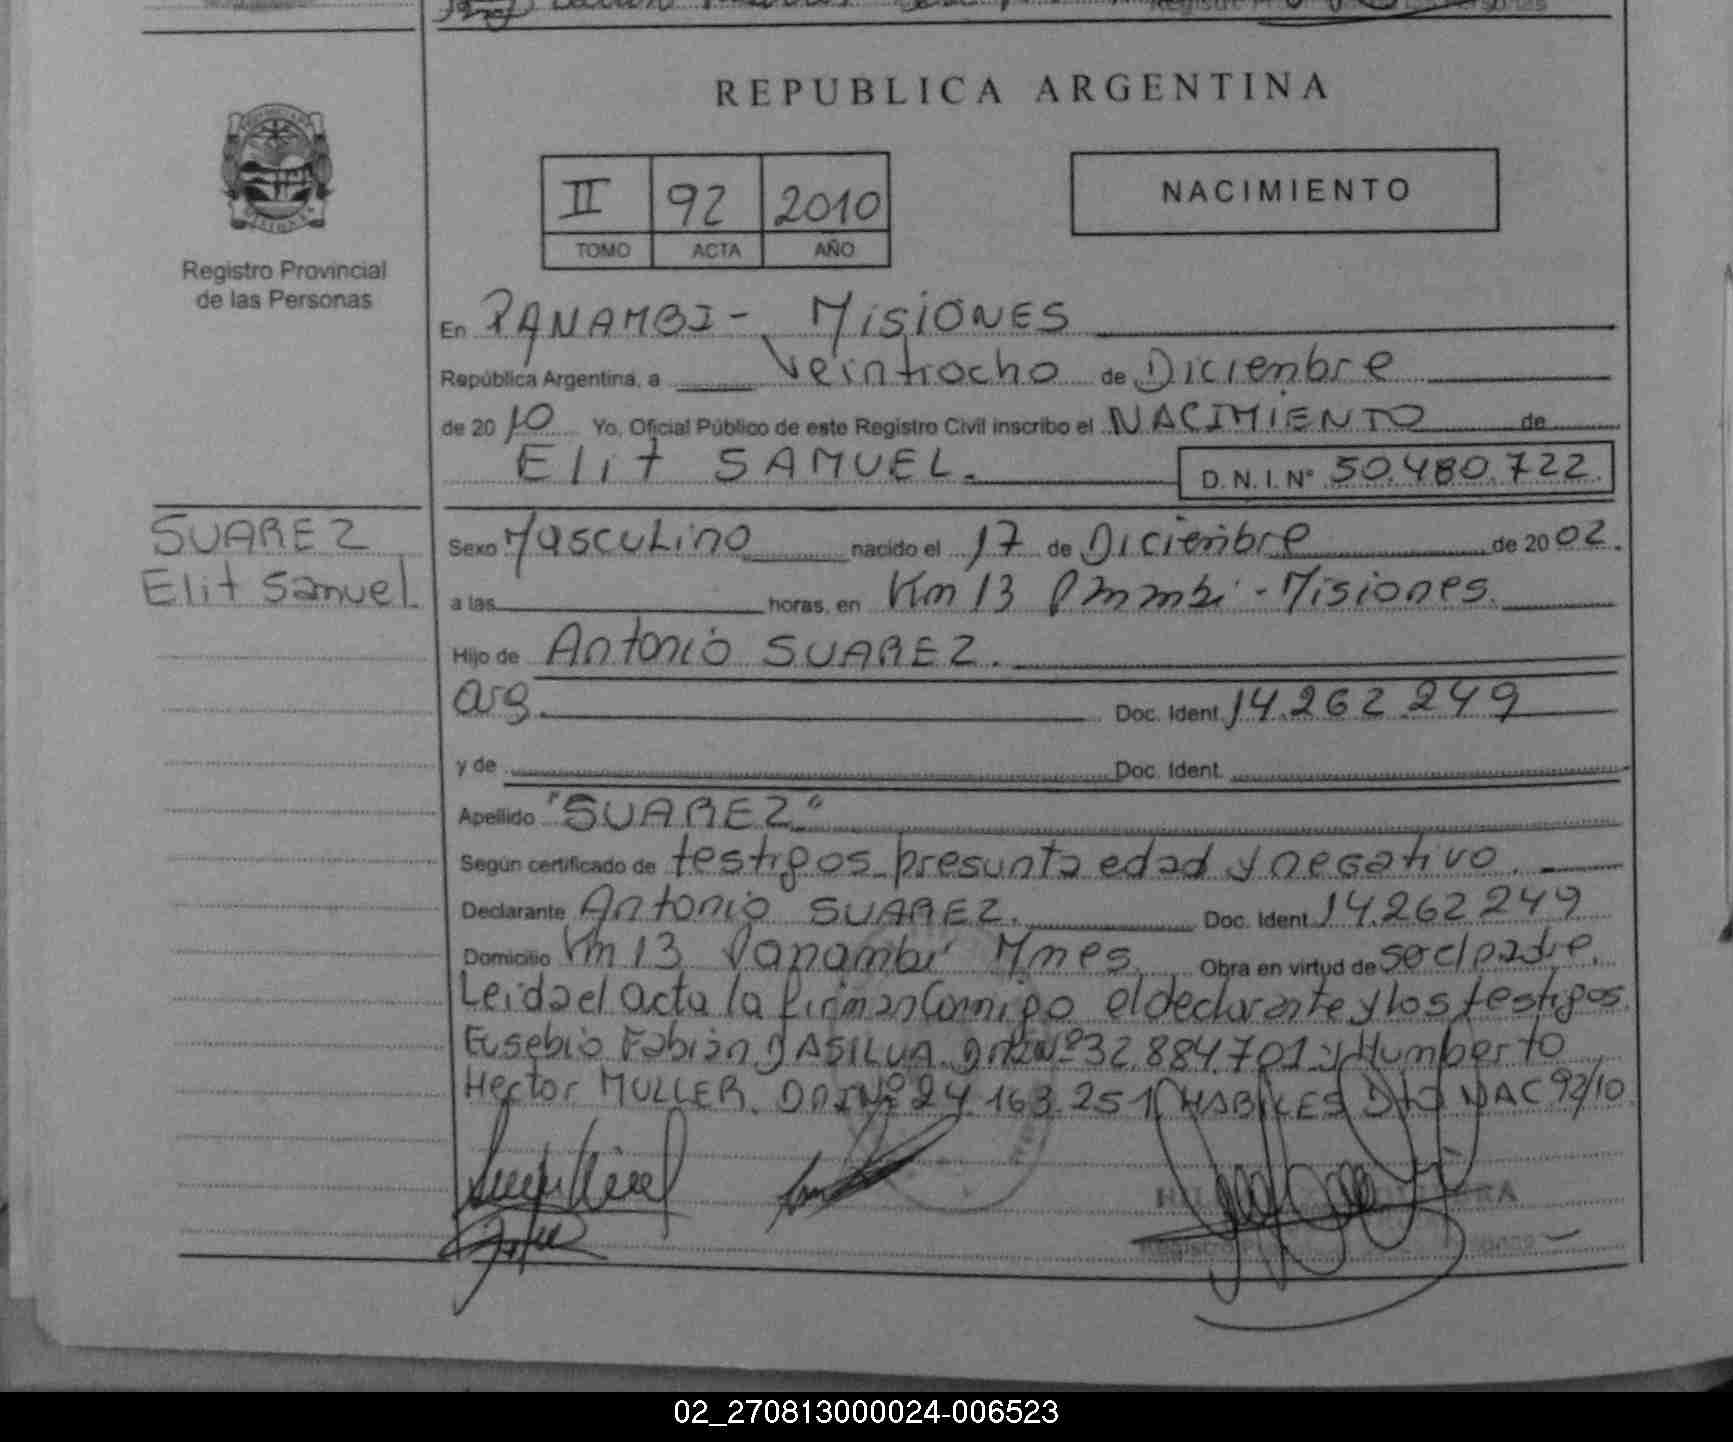 REPUBLICA ARGENTINA
II 92 2010
TOMO ACTA AÑO
NACIMIENTO
Registro Provincial
de las Personas
En PANAMBI - MISIONES
República Argentina, a Veintiocho de Diciembre
de 20 10 Yo, Oficial Público de este Registro Civil inscribo el NACIMIENTO de
Elit SAMUEL. D.N.I.Nº 50.480.722.
SUAREZ
Elit Samuel.
Sexo Masculino nacido el 17 de Diciembre de 20 02.
a las horas, en Km 13 Panambi - Misiones.
Hijo de Antonio SUAREZ.
Arg. Doc. Ident. 14.262.249
y de Doc. Ident.
Apellido "SUAREZ"
Según certificado de testigos presunta edad y negativo.
Declarante Antonio SUAREZ. Doc. Ident. 14.262.249
Domicilio Km 13 Panambi Mnes. Obra en virtud de ser el padre.
Leida el acta la firman Conmigo el declarante y los testigos.
Eusebio Fabian DASILVA DNI Nº 32.884.701 y Humberto
Hector MULLER. DNI Nº 24.163.251 HABILES Dto NAC 92/10
02_270813000024-006523